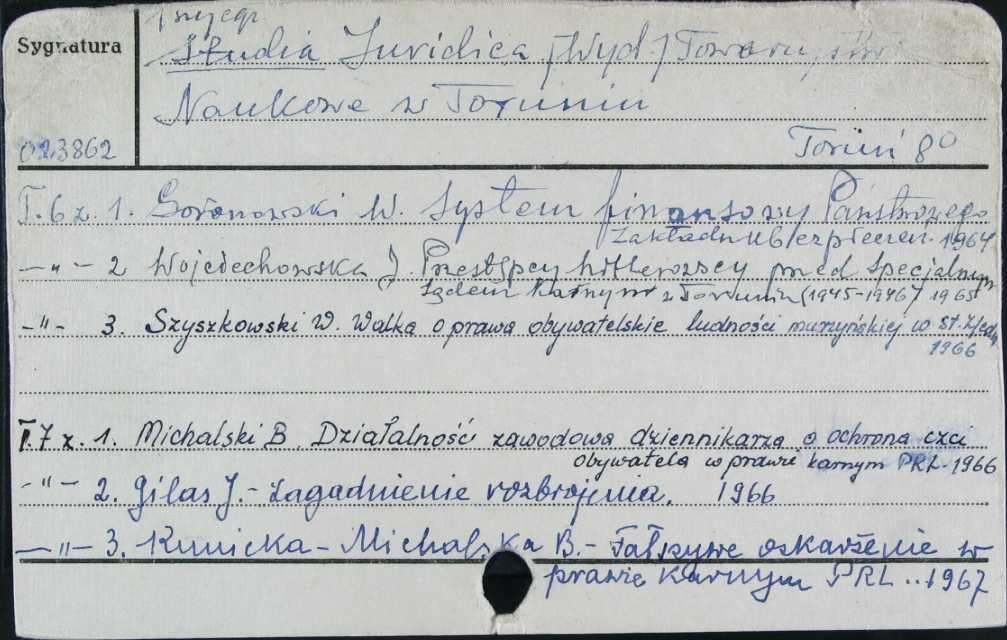 Sygnatura
Studia Juridica [Wyd] Towarzystwo
Naukowe w Toruniu
023862
Toruń 8°
T. 6 z. 1. Goronowski W. System finansowy Państwowego
Zakładu Ubezpieczeń. 1964
— " — 2 Wojciechowska J. Przestępcy hitlerowscy przed Specjalnym
Sądem Karnym w Toruniu (1945-1946) 1965
- " - 3. Szyszkowski W. Walka o prawa obywatelskie ludności murzyńskiej w St. Zjedn
1966
T. 7 z. 1. Michalski B. Działalność zawodowa dziennikarza a ochrona czci
obywatela w prawie karnym PRL. 1966
- " - 2. Gilas J. - Zagadnienie rozbrojenia. 1966
— " — 3. Kunicka - Michalska B. - Fałszywe oskarżenie w
prawie karnym PRL .. 1967